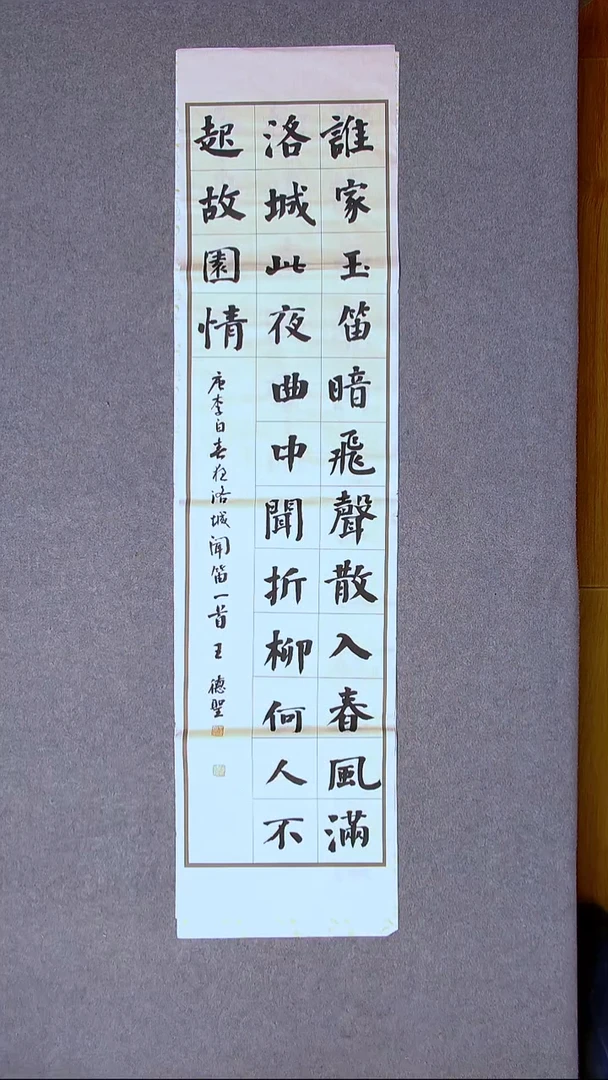 誰家玉笛暗飛聲散入春風滿
洛城此夜曲中聞折柳何人不
起故園情
唐李白春夜洛城闻笛一首 王德聖